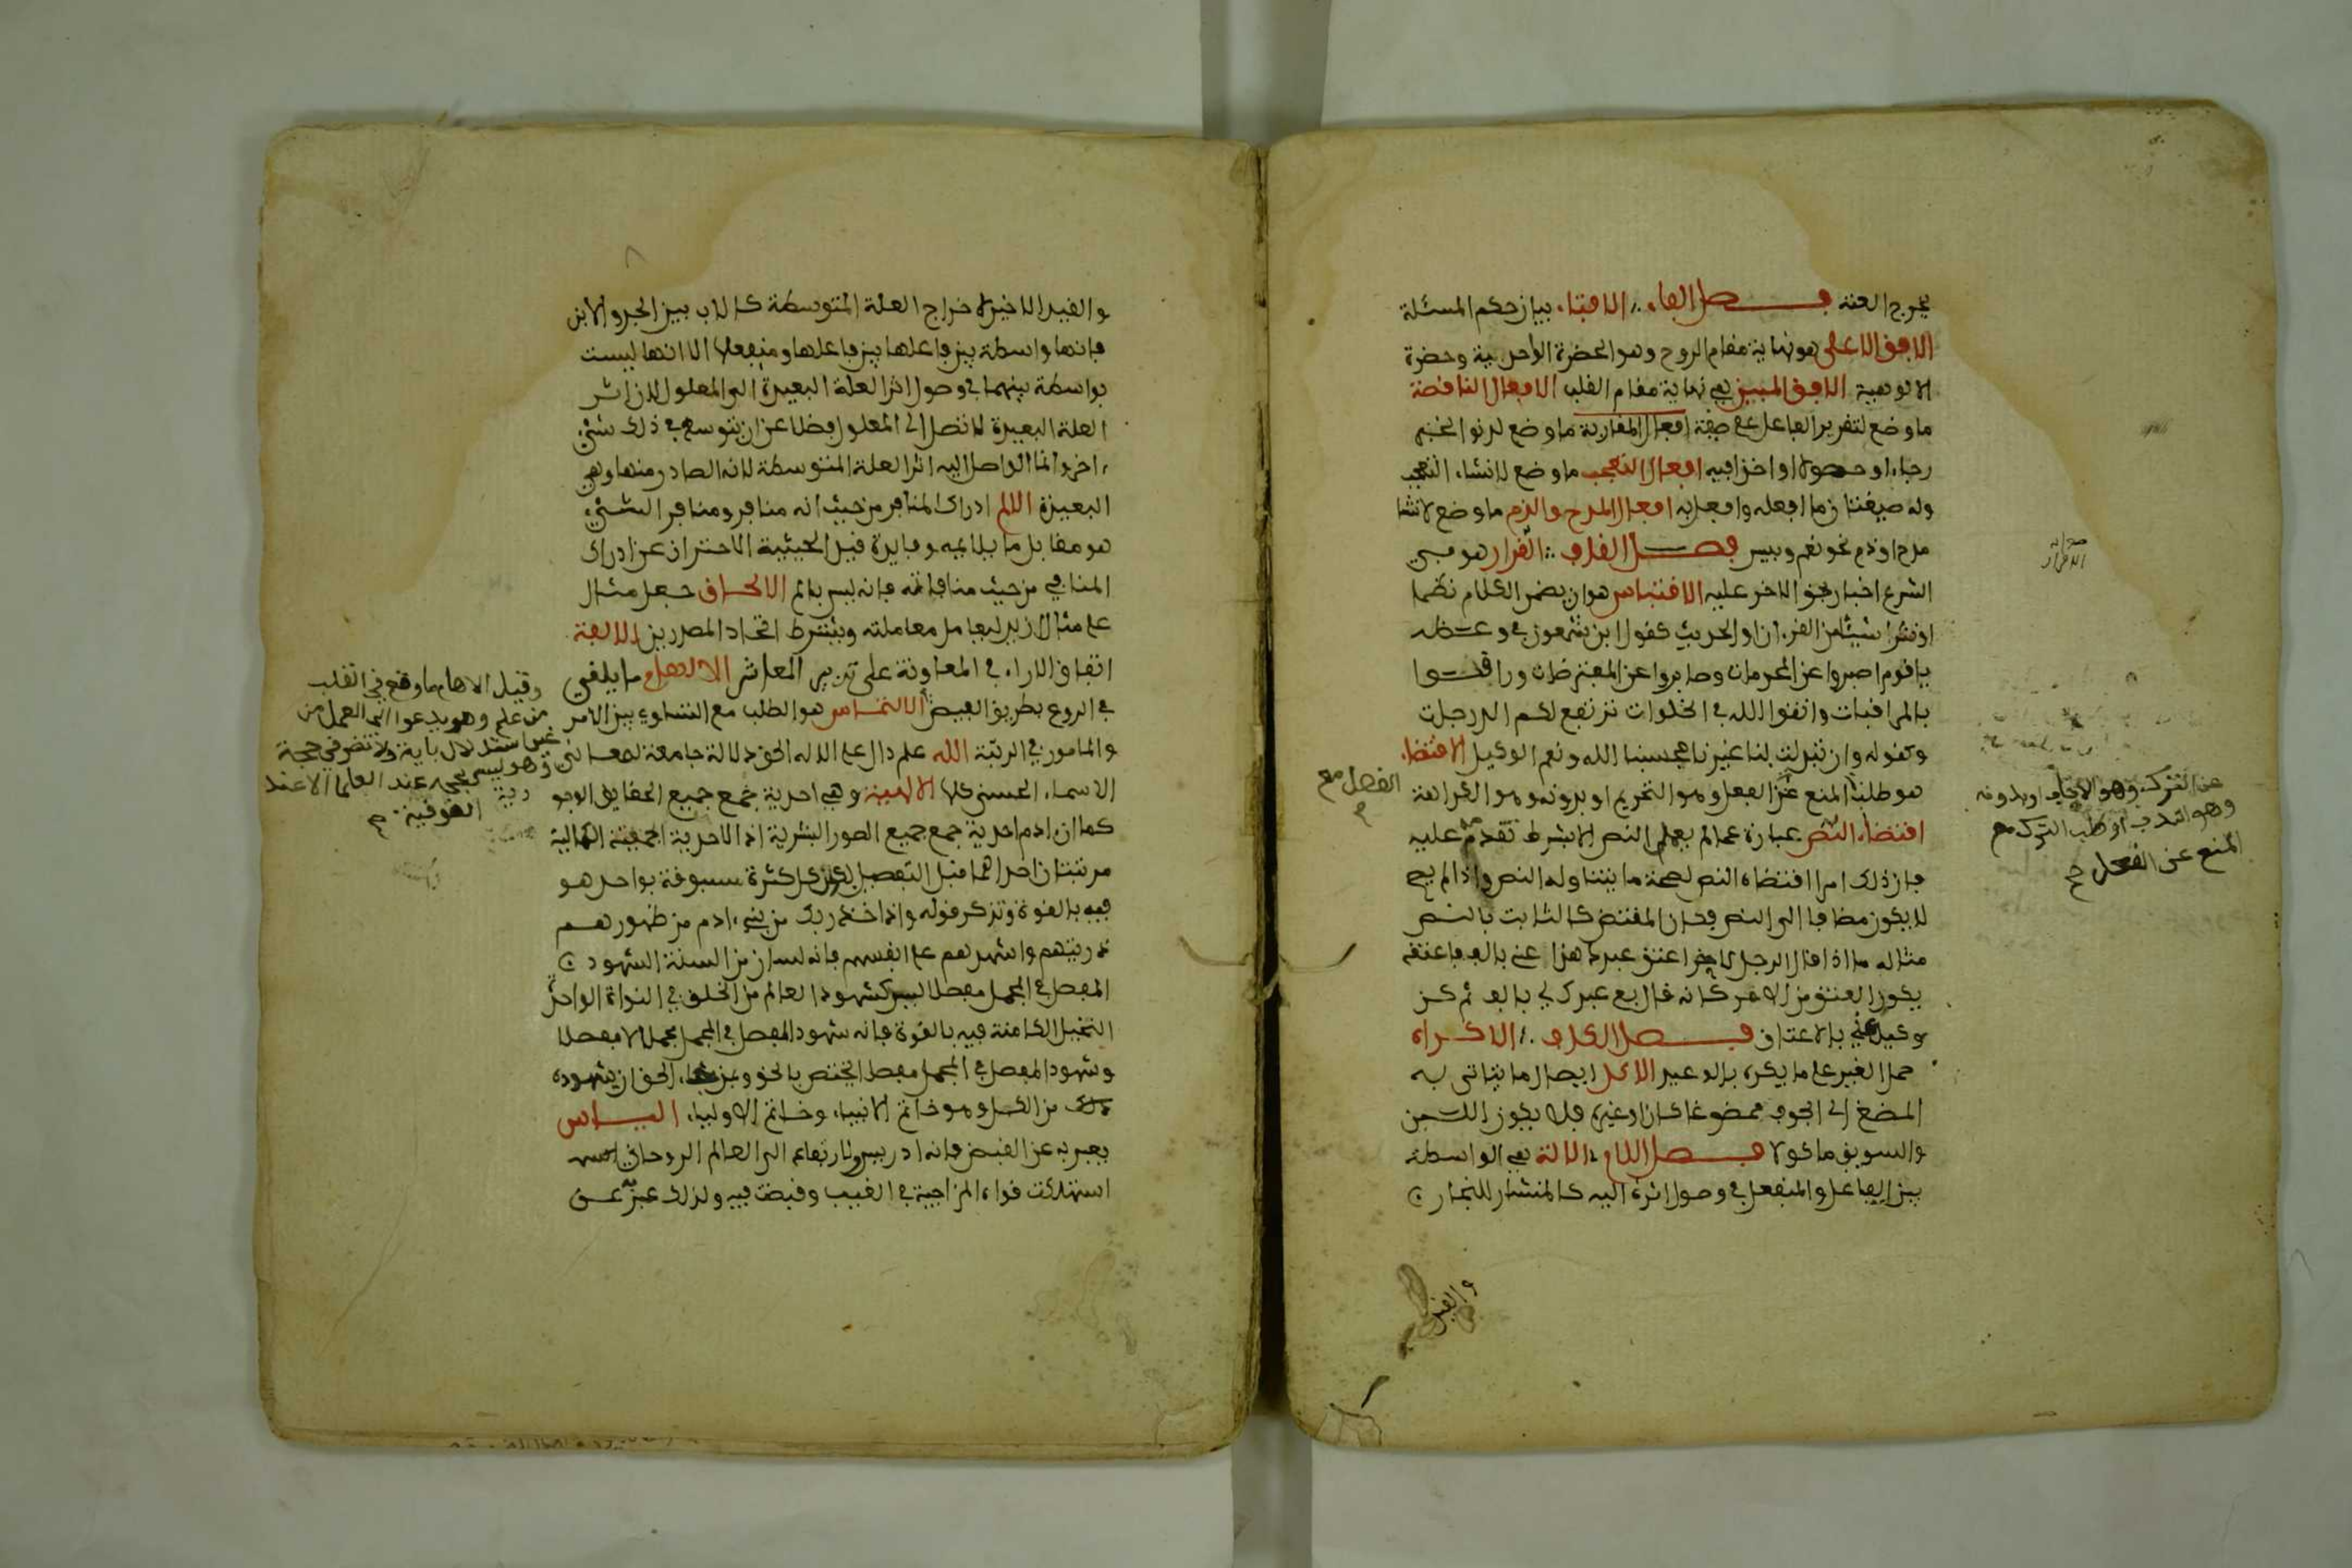 يخرج العنه فصل الفاء الافتاء بيان حكم المسئلة
الافق الاعلى هو نهاية مقام الروح وهو الحضرة الواحدية وحضرة
الالوهية الافق المبين هي نهاية مقام القلب الافعال الناقصة
ما وضع لتقرير الفاعل على صفة افعال المقاربة ما وضع لدنو الخبر
رجاء او حصولا او اخذا فيه افعال التعجب ما وضع لانشاء التعجب
وله صيغتان ما افعله وافعل به افعال المدح والذم ما وضع لانشا
مدح او ذم نحو نعم وبيس فصل القاف القرار هو في
الشرع اخبار بحق الاخر عليه الاقتباس هو ان يضمن الكلام نظما
او نثرا شيئا من القرءان او الحديث كقول ابن شمعون في وعظه
يا قوم اصبروا عن المحرمات وصابروا عن المفترضات ورابطوا
بالمراقبات واتقوا الله في الخلوات ترتفع لكم الدرجات
وكقوله وان تبدلت بنا غيرنا فحسبنا الله ونعم الوكيل الاقتضاء
هو طلب المنع عن الفعل وهو التحريم او بدونه وهو الكراهة
اقتضاء النص عبارة عما لم يعمل النص الا بشرط تقدم عليه
فان ذلك امر اقتضاه النص لصحة ما يتناوله النص واذا لم يصح
لا يكون مضافا الى النص فكان المقتضى كالثابت بالنص
مثاله ما اذا قال الرجل لاخر اعتق عبدك هذا عني بالف فاعتقه
يكون العتق من الامر كانه قال بع عبدك لي بالف ثم كن
وكيل عني بالاعتاق فصل الكاف الاكراه
حمل الغير على ما يكره بالوعيد الاكل ايصال ما يتاتى به
المضغ الى الجوف ممضوغا كان او غيره فلا يكون اللبن
والسويق ماكولا فصل اللام الالة هي الواسطة
بين الفاعل والمنفعل في وصول اثره اليه كالمنشار للنجار
والقيد
صوابه
الاقرار
الفعل مع
عن الترك وهو الايجاب او بدونه
وهو الندب او طلب الترك مع
المنع عن الفعل
والقيد الاخير لاخراج العلة المتوسطة كالاب بين الجد والابن
فانها واسطة بين فاعلها بين فاعلها ومنفعلها الا انها ليست
بواسطة بينهما في وصول اثر العلة البعيدة الى المعلول لان اثر
العلة البعيدة لا تصل الى المعلول فضلا عن ان يتوسط في ذلك شيء
اخر وانما الواصل اليه اثر العلة المتوسطة لانه الصادر منها وهي
البعيدة الالم ادراك المنافر من حيث انه منافر ومنافر الشيء
هو مقابل ما يلايمه وفايدة قيد الحيثية الاحتراز عن ادراك
المنافي من حيث منافاته فانه ليس بالم الالحاق جعل مثال
على مثال ازيد ليعامل معاملته ويشترط اتحاد المصدرين الالفة
اتفاق الاراء في المعاونة على تدبير المعاش الالهام ما يلقى
في الروع بطريق الفيض الالتماس هو الطلب مع التساوي بين الامر
والمامور في الرتبة الله علم دال على الاله الحق دلالة جامعة لمعاني
الاسماء الحسنى كلها الالهية وهي احدية جمع جميع الحقايق الوجو
كما ان ادم احدية جمع جميع الصور البشرية اذ الاحدية الجمعية الكمالية
مرتبتان احداهما قبل التفصيل لكون كل كثرة مسبوقة بواحد هو
فيه بالقوة وتذكر قوله واذ اخذ ربك من بني ءادم من ظهورهم
ذريتهم واشهدهم على انفسهم فانه لسان من السنة الشهود
المفصل في المجمل مفصلا ليس كشهود العالم من الخلق في النواة الواحدة
النخيل الكامنة فيه بالقوة فانه شهود المفصل في المجمل مجملا لا مفصلا
وشهود المفصل في المجمل مفصلا يختص بالحق وبمن شاء الحق ان يشهده
ذلك من الكمل وهو خاتم الانبياء وخاتم الاولياء الياس
يعبر به عن القبض فانه ادريس ولارتفاعه الى العالم الروحاني
استهلكت قواه المزاجية في الغيب وقبضت فيه ولذلك عبر به عن
وقيل الالهام ما وقع في القلب
من علم وهو يدعوا الى العمل من
غير استدلال باية ولا نظر في حجة
وهو ليس بحجة عند العلما الا عند
الصوفية
دية